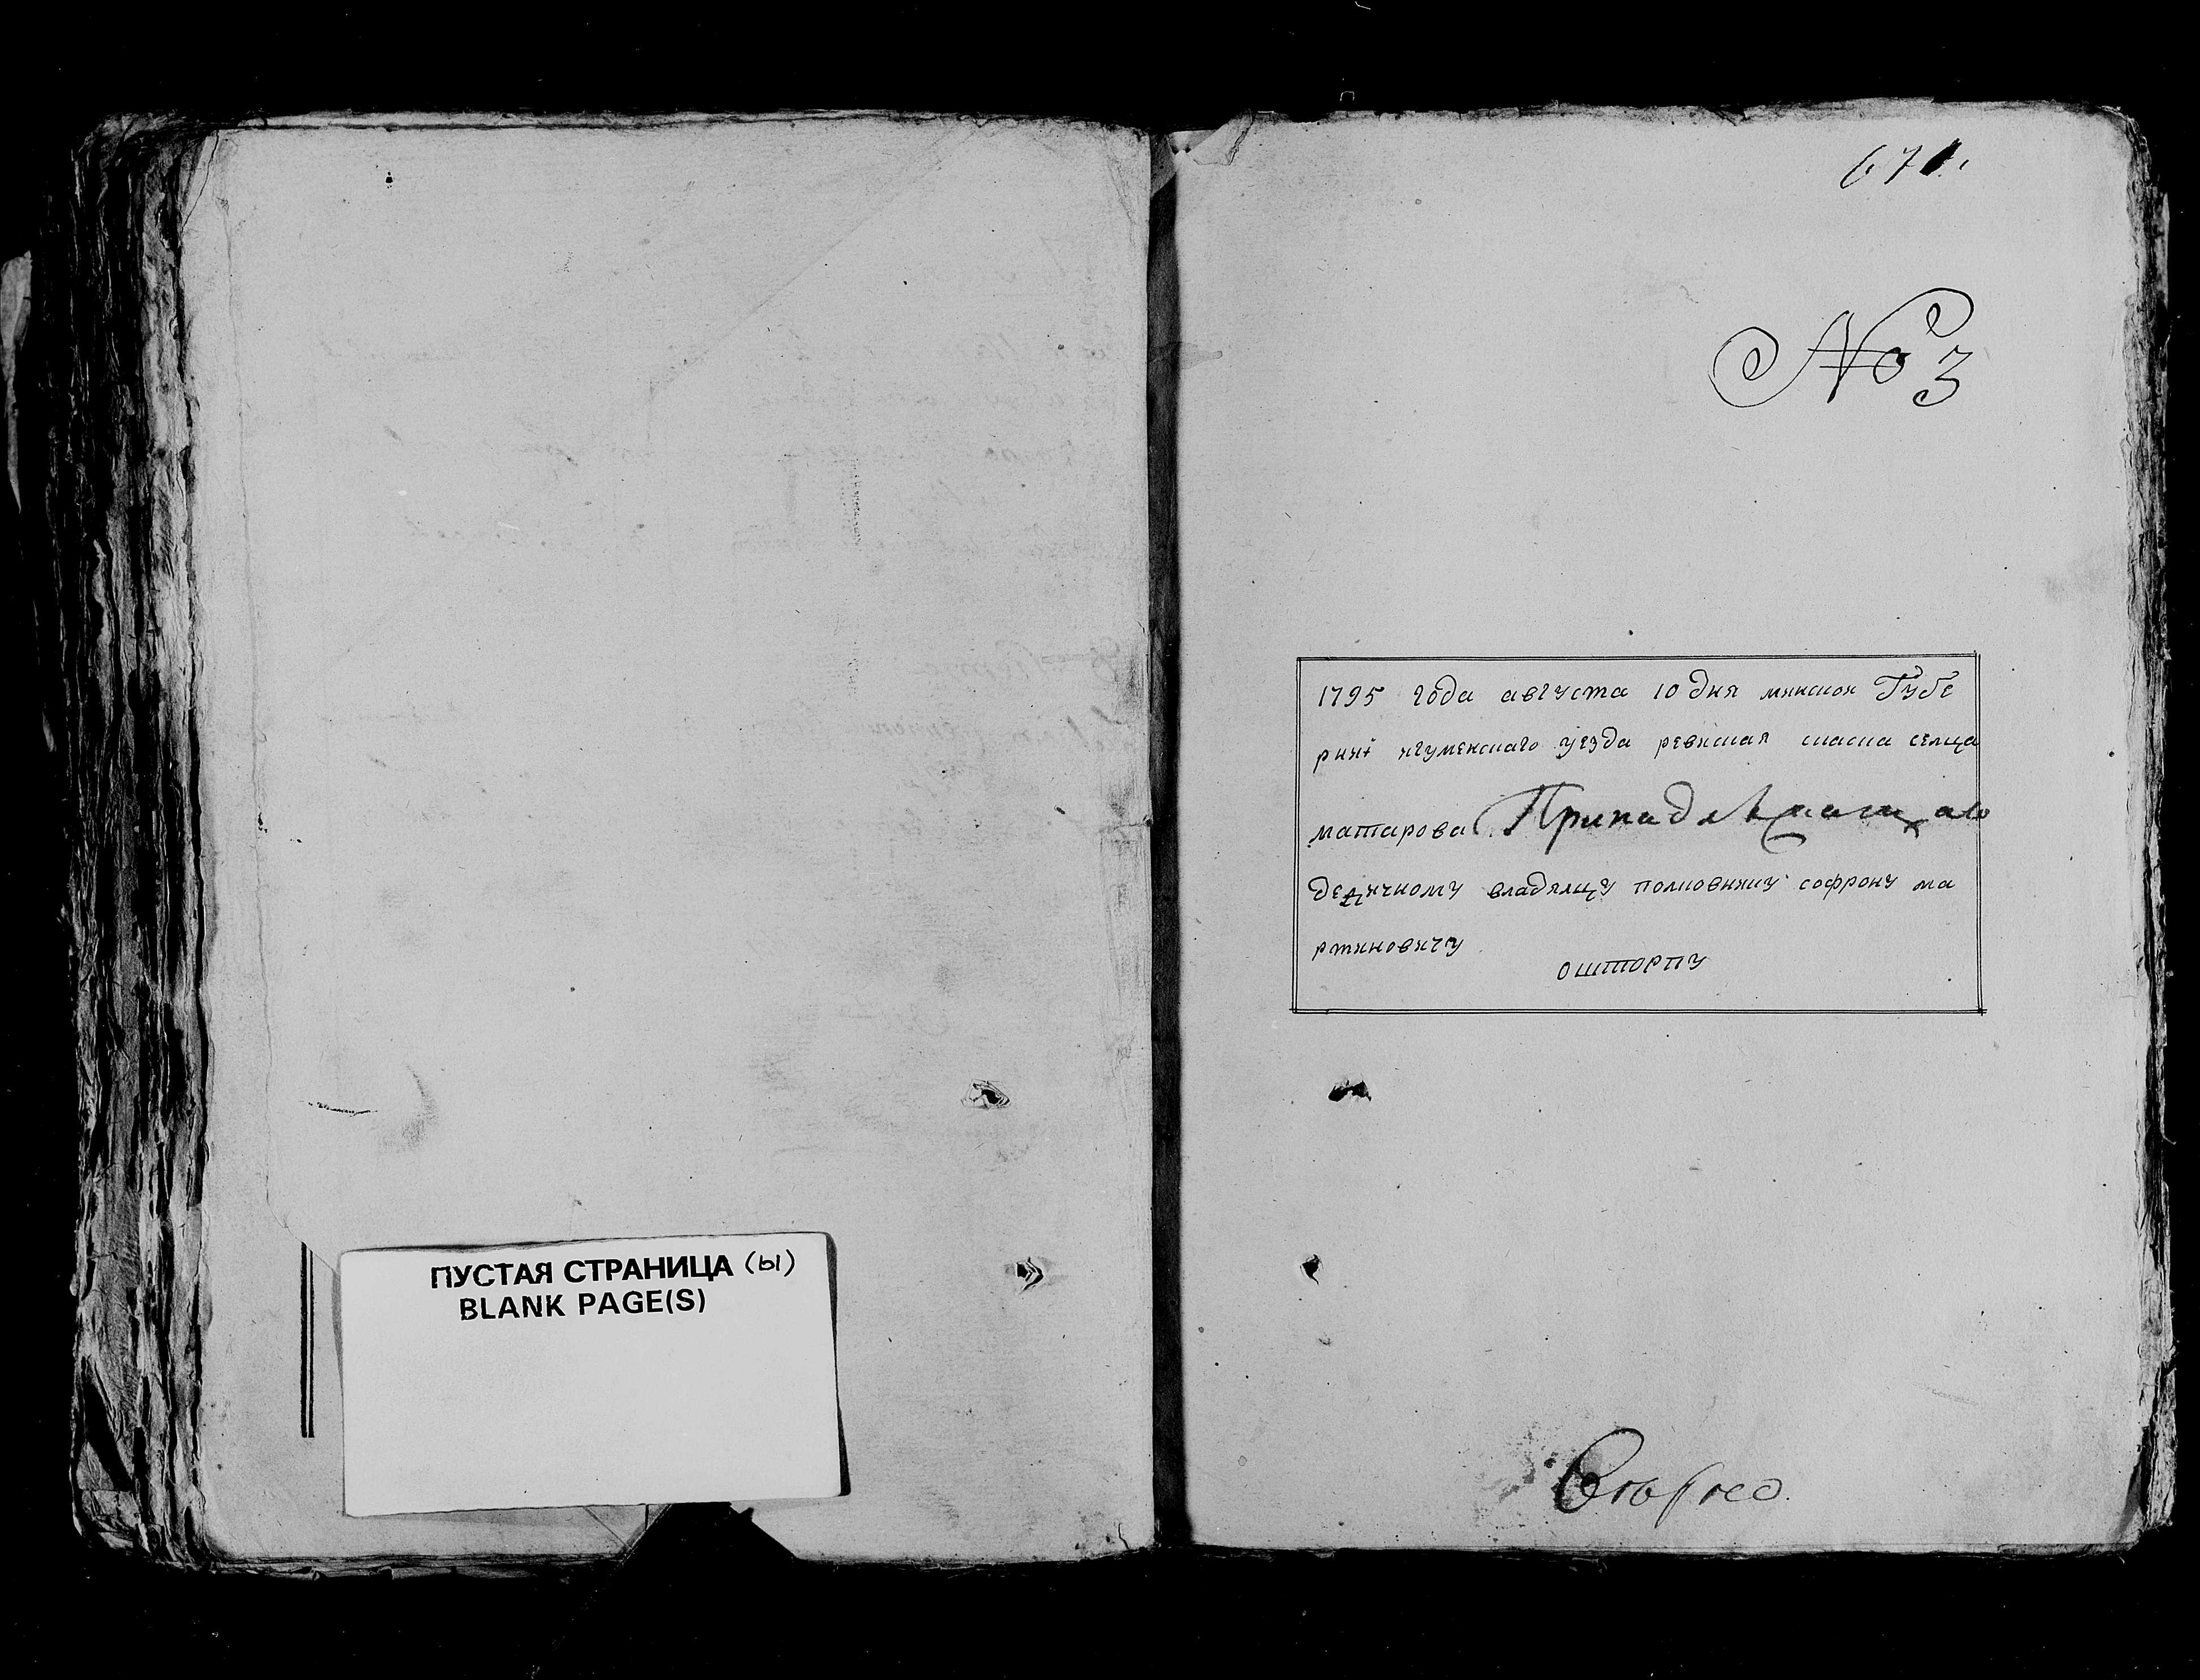 ПУСТАЯ СТРАНИЦА (Ы)
BLANK PAGE(S)
67
№ 3
1795 года августа 10 дня минскои Губе
рниі игуменскаго уезда ревиская скаска селца
матарова Принадлежащаго
дедичному владелцу полковнику софрону ма
ртиновичу
ошторпу